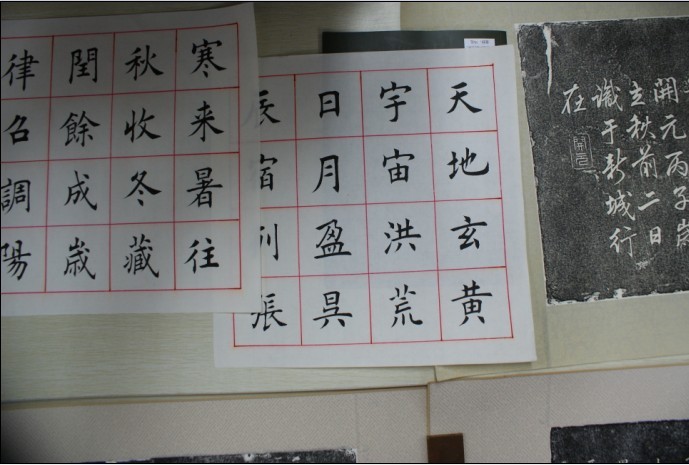 天地玄黄
宇宙洪荒
日月盈昗
辰宿列張
寒来暑往
秋收冬藏
閏餘成歳
律召調陽
開元丙子歲
立秋前二日
識于新城行
在